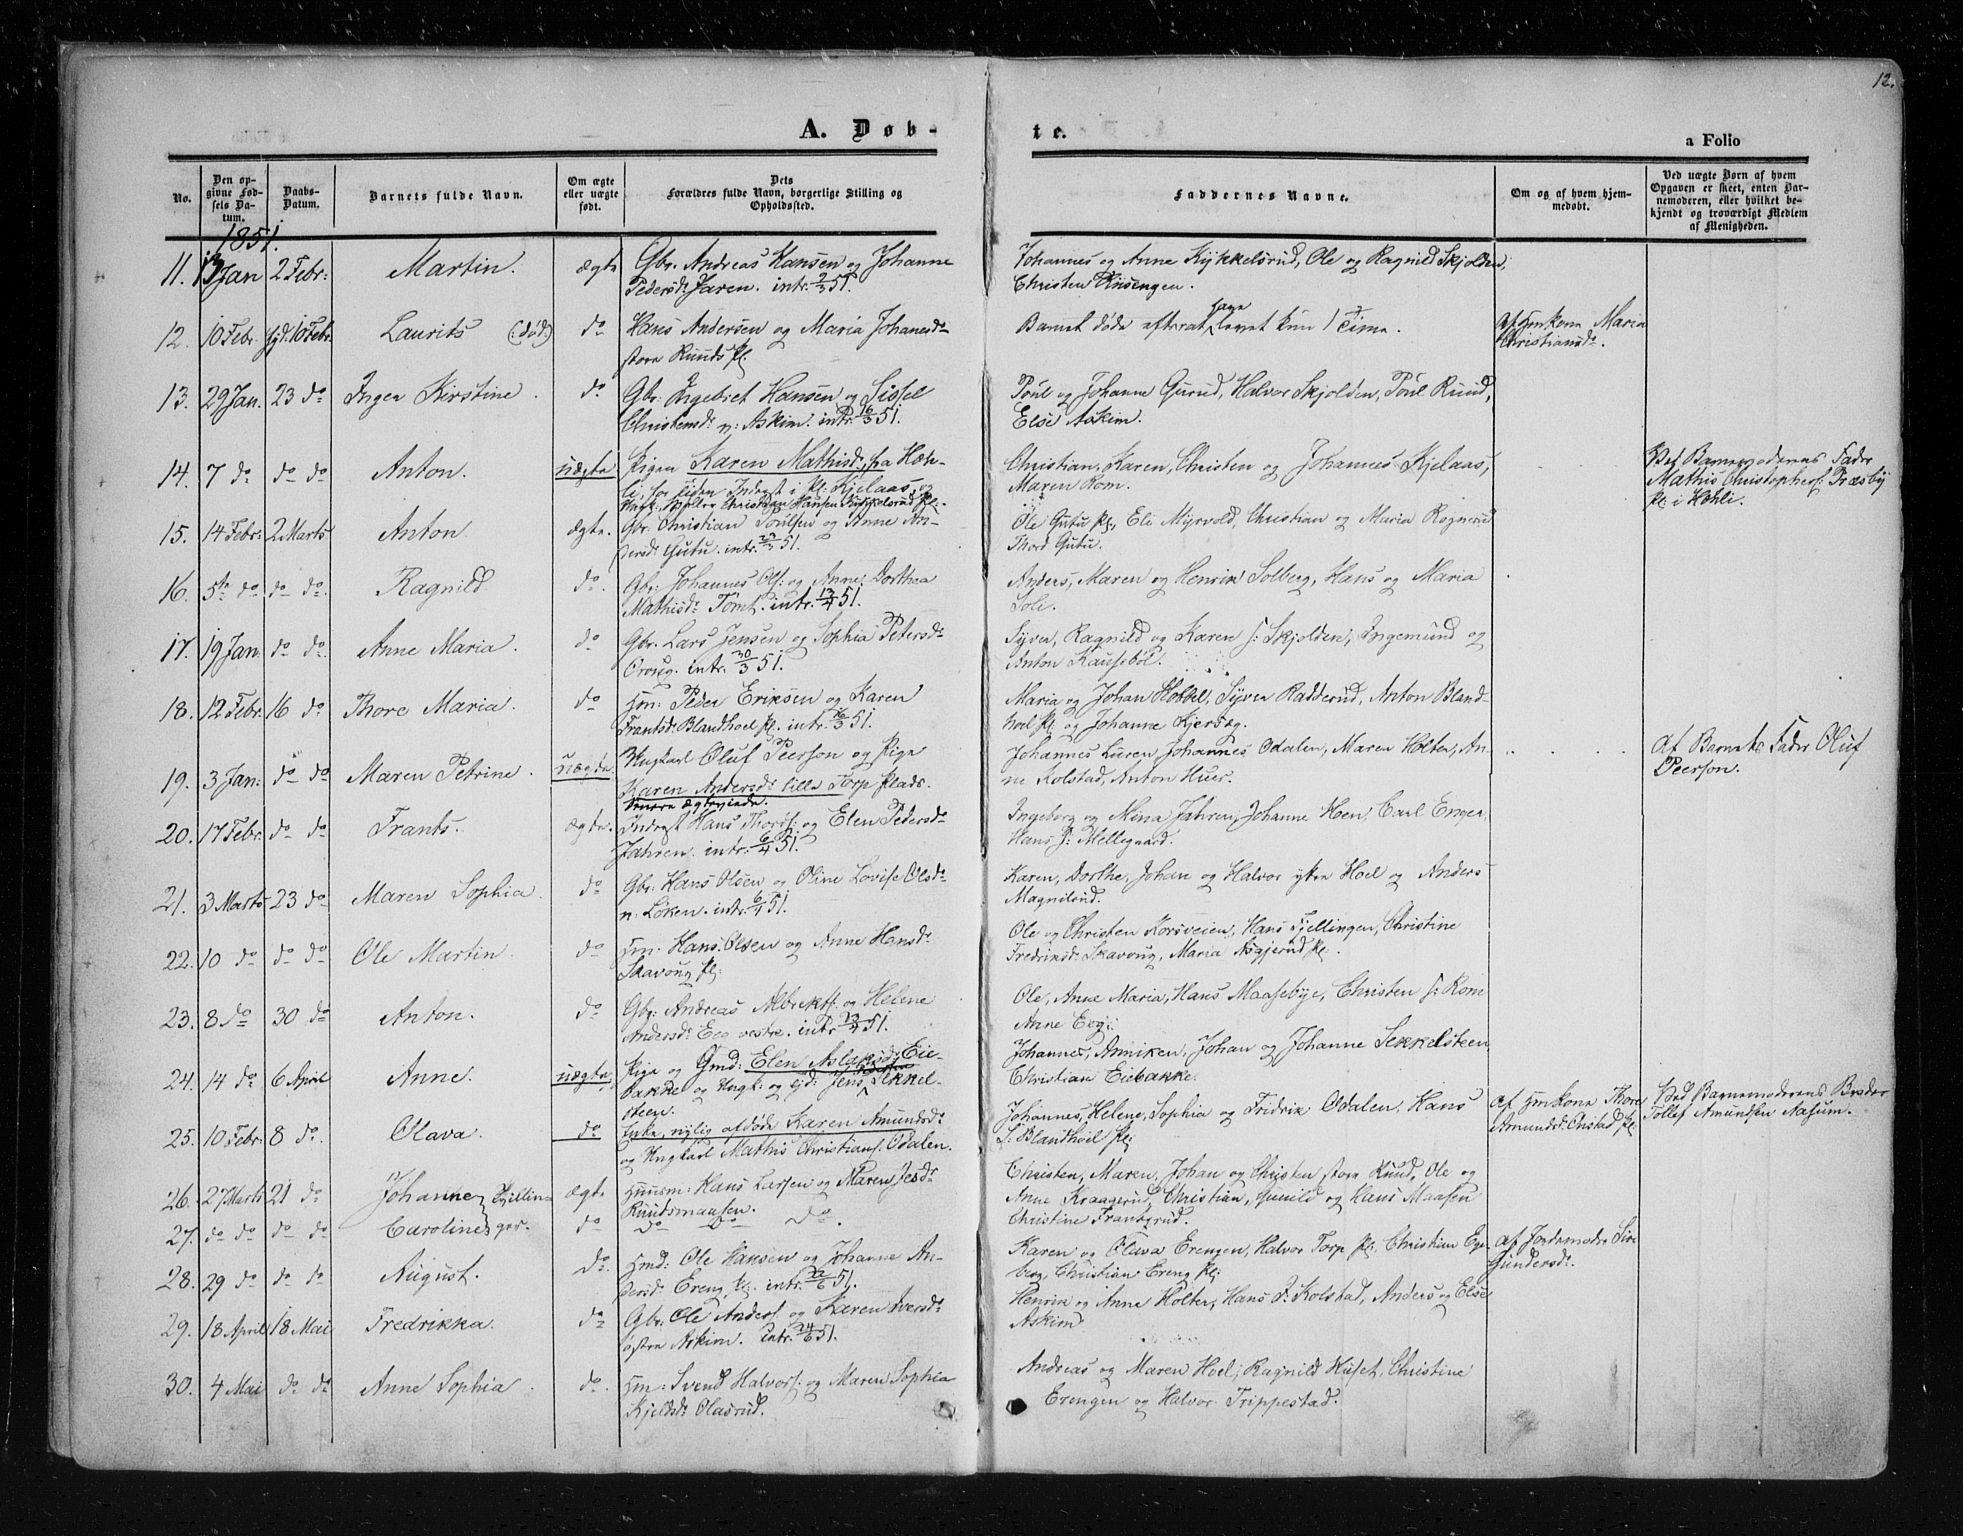 12.
A. Døb-
te.
a Folio
No.
Den opgivne Fødsels Datum.
Daabs-Datum.
Barnets fulde Navn.
Om ægte eller uægte født.
Dets Forældres fulde Navn, borgerlige Stilling og Opholdssted.
Faddernes Navne.
Om og af hvem hjemmedøbt.
Ved uægte Børn af hvem Opgaven er skeet, enten Barnemoderen, eller hvilket bekjendt og troværdigt Medlem af Menigheden.
1851.
11. Jan 2 Febr: Martin. ægte Gbr. Andreas Hansen og Johanne
Pedersd: Jaren. intr. 9/3 51.
Johannes og Anne Kykkelsrud, Ole og Ragnild Skjolden,
Christen
12. 10 Febr. hjd. 10 Febr. Laurits (:død:) do Hans Andersen og Maria Johannesd:
store Ruuds Pl:
Barnet døde efterat have levet kun 1 Time.
Af Hmkone Maria
Christiansd.
13. 29 Jan. 23 do Ingen Kirstine. do. Gbr: Ingebret Hansen og Sissel
Christensd: n: Askim. intr. 16/3 51.
Poul og Johanne Gurud, Halvor Skjolden, Poul Ruud,
Else Askim.
14. 7 do do do Anton. uægte Pigen Karen Mathisd:, fra Høh-
li, for tiden Inderst i Pl: Kjelaas, og
Ungk. Christian Hansen Kykkelsrud Pl.
Christian, Karen, Christen og Johannes Kjelaas,
Maren Rom.
Ved Barnemoderens Fader
Mathis Christophers: Træsby
Pl: i Høhli.
15. 14 Febr: 2 Marts Anton. ægte. Gbr: Christian Poulsen og Anne An-
dersd: Gutu. intr. 51.
Ole Gutu Pl:, Eli Myrvold, Christian og Maria Rognerud
Thord Gutu.
16. 5te do do do. Ragnild do. Gbr: Johannes Ols: og Anne Dorthea
Mathisd: Tomt. intr. 13/4 51.
Anders, Maren og Henrik Solberg, Hans og Maria
Soli.
17. 19 Jan. do do. Anne Maria. do Gbr. Lars Jensen og Sophia Petersd:
intr. 30/3 51.
Syver, Ragnild og Karen s: Skjolden, Ingemund og
Anton Kaussebøl.
18. 12 Febr. 16 do Thore Maria. do Hm: Peder Eriksen og Karen
Frantsd: Blandhoel Pl. intr. 16/3 51.
Maria og Johan Hobbel, Syver Radderud, Anton Bland-
hoel Pl: og Johanne Kjersøg.
19. 3 Jan: do do Maren Petrine. uægte. Ungkarl Oluf Peerson og Pige
Karen Andersd: lille Torp Plads.
Senere ægteviede.
Johannes Luren, Johannes Odalen, Maren Holter, An-
ne Kolstad, Anton Huer.
Af Barnets Fader Oluf
Peerson.
20. 17 Febr. do do Frants. ægte. Inderst Hans Thors: og Elen Pedersd:
Jahren. intr. 6/4 51.
Ingeborg og Mina Jahren, Johanne Hoen, Carl Enger,
Hans s: Mellegaard.
21. 3 Marts 23 do Maren Sophia. do Gbr: Hans Olsen og Oline Lovise Olsd:
n: Løken. intr. 6/4 51.
Karen, Dorthe, Johan og Halvor ytre Hoel og Anders
Magnilrud.
22. 10 do do do Ole Martin. do Hm: Hans Olsen og Anne Hansd:
Skavoug Pl:
Ole og Christen Korsveien, Hans Fjellingen, Christine
Fredriksd: Skavoug, Maria Asgjerud Pl.
23. 8 do 30 do Anton. do Gbr: Andreas Albrekts: og Helene
Andersd: Eeg vestre. intr. 13/4 51.
Ole, Anne Maria, Hans Maasebye, Christen s: Rom
Anne Eeg.
24. 14 do 6 April Anne. uægte Pige og Gmd: Elen Aslaksd: Eie-
bakke og Ungk: og Gjd: Jens Sekkel-
steen.
Johannes, Anniken, Johan og Johanne Sekkelsteen
Christian Eiebakke.
25. 10 Febr. 8 do. Olava. do Enke, nylig afdøde Karen Amundsd:
og Ungkarl Mathis Christians: Odalen.
Johannes, Helene, Sophia og Fridrik Odalen, Hans
s: Blandhoel Pl:
Af Hmkone Thore
Amundsd: Onstad Pl:
Ved Barnemoderens Broder
Tollef Amundsen Nasum.
26. 27 Marts 21 do Johanne Tvillin- ægte Huusm: Hans Larsen og Maren Jensd:
Ruudsmausen.
Christen, Maren, Johan og Christen store Ruud, Ole og
Anne Kraagerud, Christian, Gunild og Hans Maasen
Christine Frantsrud.
27. do do do do Caroline ger. do do do do.
28. 29 do do do August. do. Hmd: Ole Hansen og Johanne An-
dersd: Ereng Pl. intr. 22/6 51.
Karen og Olava Erengen, Halvor Torp Pl: Christian Ege-
berg, Christian Ereng Pl:
Af Jordemoder Siri
Gundersd:
29. 18 April 18 Mai Fredrikka. do Gbr: Ole Anders: og Karen Iversd:
østre Askim. intr. 24/6 51.
Henrik og Anne Holter, Hans s: Kolstad, Anders og Else
Askim
30. 4 Mai do do Anne Sophia. do. Hm: Svend Halvors: og Maren Sophia
Kjeldsd: Olasrud.
Andreas og Maren Hoel, Ragnild Huset, Christine
Erengen og Halvor Trippestad.